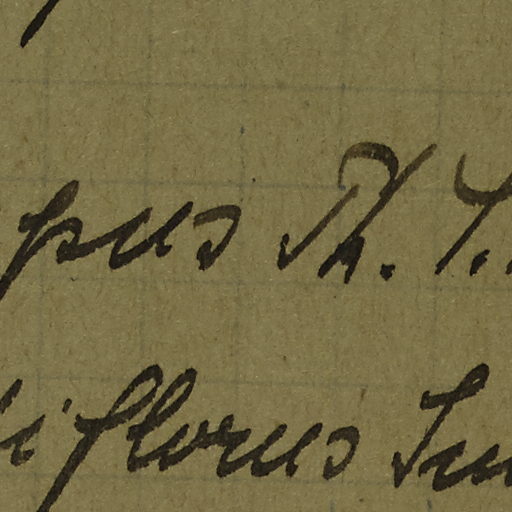 pus Th. S.
iflorus Su